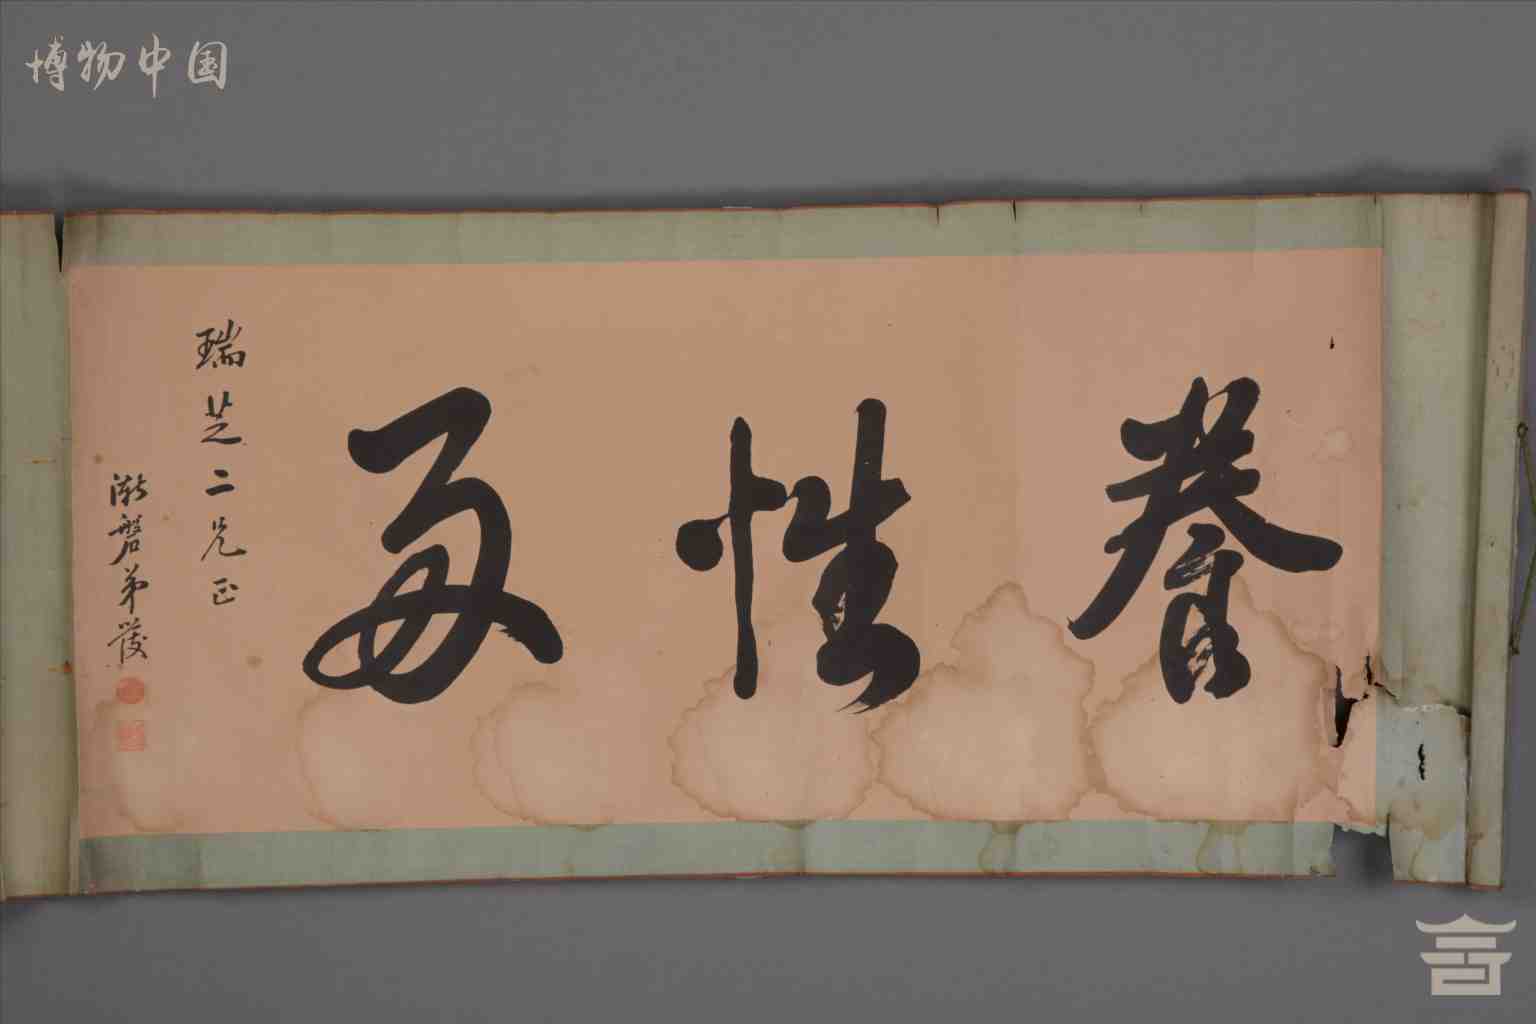 博物中国
養性
瑞芝二兄正
漸磐弟